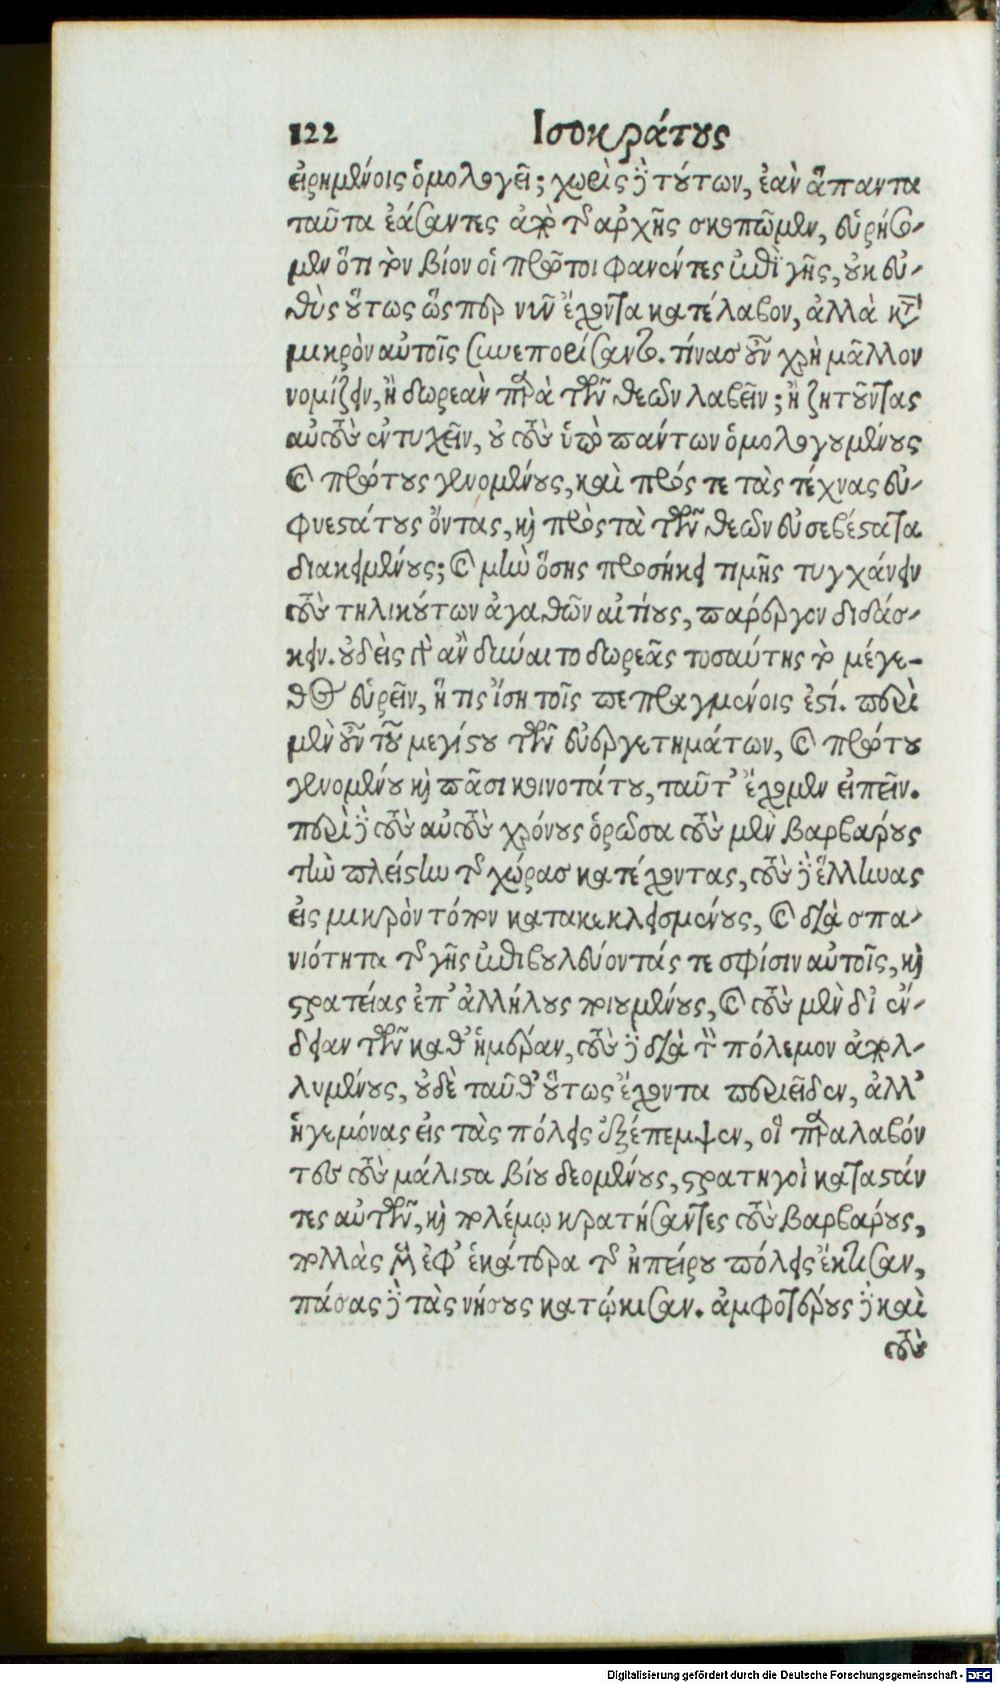 122 Ισοκράτους
εἰρημένοις ὁμολογεῖ; χωρὶς δὲ τούτων, ἐὰν ἅπαντα
ταῦτα ἐάσαντες ἀπὸ τῆς ἀρχῆς σκοπῶμεν, εὑρήσο-
μεν ὅτι τὸν βίον οἱ πρῶτοι φανέντες ἐπὶ γῆς, οὐκ εὐ-
θὺς οὕτως ὥσπερ νῦν ἔχοντα κατέλαβον, ἀλλὰ κατὰ
μικρὸν αὐτοῖς συνεπορίσαντο. τίνας οὖν χρὴ μᾶλλον
νομίζειν, ἢ δωρεὰν παρὰ τῶν θεῶν λαβεῖν; ἢ ζητοῦντας
αὐτοὺς ἐντυχεῖν, οὐ τοὺς ὑπὸ πάντων ὁμολογουμένους
καὶ πρώτους γενομένους, καὶ πρός τε τὰς τέχνας εὐ-
φυεστάτους ὄντας, καὶ πρὸς τὰ τῶν θεῶν εὐσεβέστατα
διακειμένους; καὶ μὴν ὅσης προσήκει τιμῆς τυγχάνειν
τοὺς τηλικούτων ἀγαθῶν αἰτίους, πάρεργον διδάσ-
κειν. οὐδεὶς γὰρ ἂν δύναιτο δωρεᾶς τοσαύτης τὸ μέγε-
θος εὑρεῖν, ἥ τις ἴση τοῖς πεπραγμένοις ἐστί. περὶ
μὲν οὖν τοῦ μεγίστου τῶν εὐεργετημάτων, καὶ πρώτου
γενομένου καὶ πᾶσι κοινοτάτου, ταῦτ' ἔχομεν εἰπεῖν.
περὶ δὲ τοὺς αὐτοὺς χρόνους ὁρῶσα τοὺς μὲν βαρβάρους
τὴν πλείστην τῆς χώρας κατέχοντας, τοὺς δὲ ἕλληνας
εἰς μικρὸν τόπον κατακεκλεισμένους, καὶ διὰ σπα-
νιότητα τῆς γῆς ἐπιβουλεύοντάς τε σφίσιν αὐτοῖς, καὶ
στρατείας ἐπ' ἀλλήλους ποιουμένους, καὶ τοὺς μὲν δι' ἔν-
δειαν τῶν καθ' ἡμέραν, τοὺς δὲ διὰ τὸν πόλεμον ἀπολ-
λυμένους, οὐδὲ ταῦθ' οὕτως ἔχοντα περιεῖδεν, ἀλλ'
ἡγεμόνας εἰς τὰς πόλεις ἐξέπεμψεν, οἳ παραλαβόν
τες τοὺς μάλιστα βίου δεομένους, στρατηγοὶ καταστάν
τες αὐτῶν, καὶ πολέμῳ κρατήσαντες τοὺς βαρβάρους,
πολλὰς μὲν ἐφ' ἑκάτερα τῆς ἠπείρου πόλεις ἔκτισαν,
πάσας δὲ τὰς νήσους κατῴκισαν. ἀμφοτέρους δὲ καὶ
τοὺς
Digitalisierung gefördert durch die Deutsche Forschungsgemeinschaft - DFG